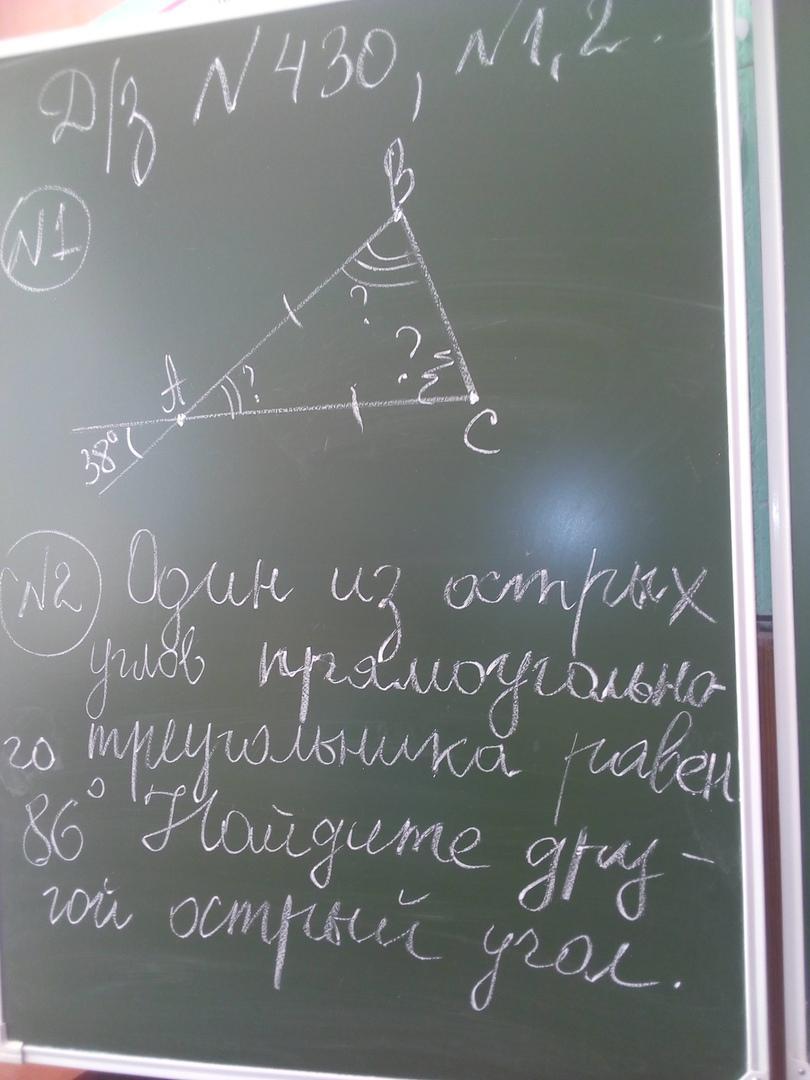 Д/з N430, N1, 2.
N1
B
?
A
?
?
C
38°
N2 Один из острых
углов прямоугольно-
го треугольника равен
86° Найдите дру-
гой острый угол.